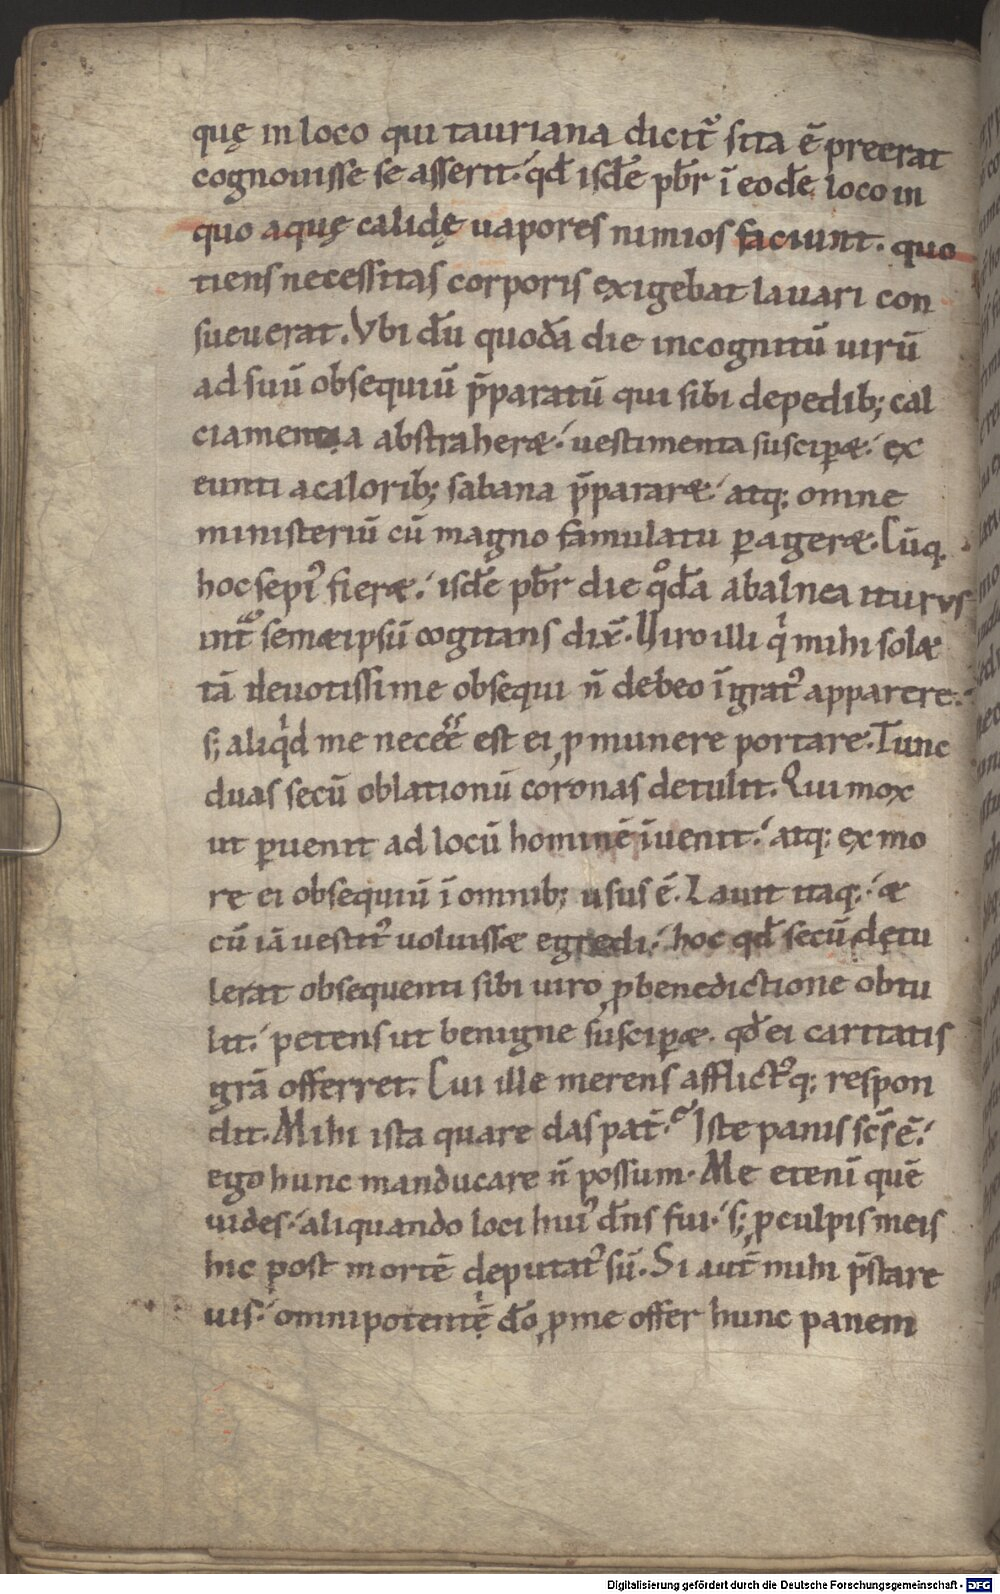 quę in loco qui tauriana dicit᷑ sita ē preerat
cognouisse se asserit. qd̄ isdē pb̄r ī eodē loco in
quo aquę calidę uapores nimios faciunt. quo
tiens necessitas corporis exigebat lauari con
sueuerat. Vbi dū quodā die incognitū uirū
ad suū obsequiū p̄paratū qui sibi de pedib; cal
ciamenta abstraheræ. uestimenta suscipæ. ex
eunti a calorib; sabana p̄pararæ. atq; omne
ministeriū cū magno famulatu ꝑageræ. Cūq;
hoc sepi᷒ fieræ. isdē pb̄r die qͦdā ab alnea iturus
int᷑ͣ semæipsū cogitans dix̄. Uiro illi qͥ mihi solæ
tā deuotissime obsequi n̄ debeo īgrat᷒ apparere.
s; aliqͥd me neceē̄ est ei ꝓ munere portare. Tunc
duas secū oblationū coronas detulit. Qui mox
ut ꝑuenit ad locū hominē īuenit. atq; ex mo
re ei obsequiū ī omnib; usus ē. Lauit itaq; æ
cū iā uestit᷒ uoluissæ egredi. hoc qd̄ secū detu
lerat obsequenti sibi uiro ꝓ benedictione obtu
lit. petens ut benigne suscipæ. qd̄ ei caritatis
gr̄a offerret. Cui ille merens afflict᷒q; respon
dit. Mihi ista quare das pat̄. Iste panis sc̄s ē.
ego hunc manducare n̄ possum. Me etenī quē
uides. aliquando loci hui᷒ dn̄s fui. s; ꝓ culpis meis
hic post mortē deputat᷒ sū. Si aut̄ mihi p̄stare
uis. omnipotentē dō ꝓ me offer hunc panem
Digitalisierung gefördert durch die Deutsche Forschungsgemeinschaft - DFG